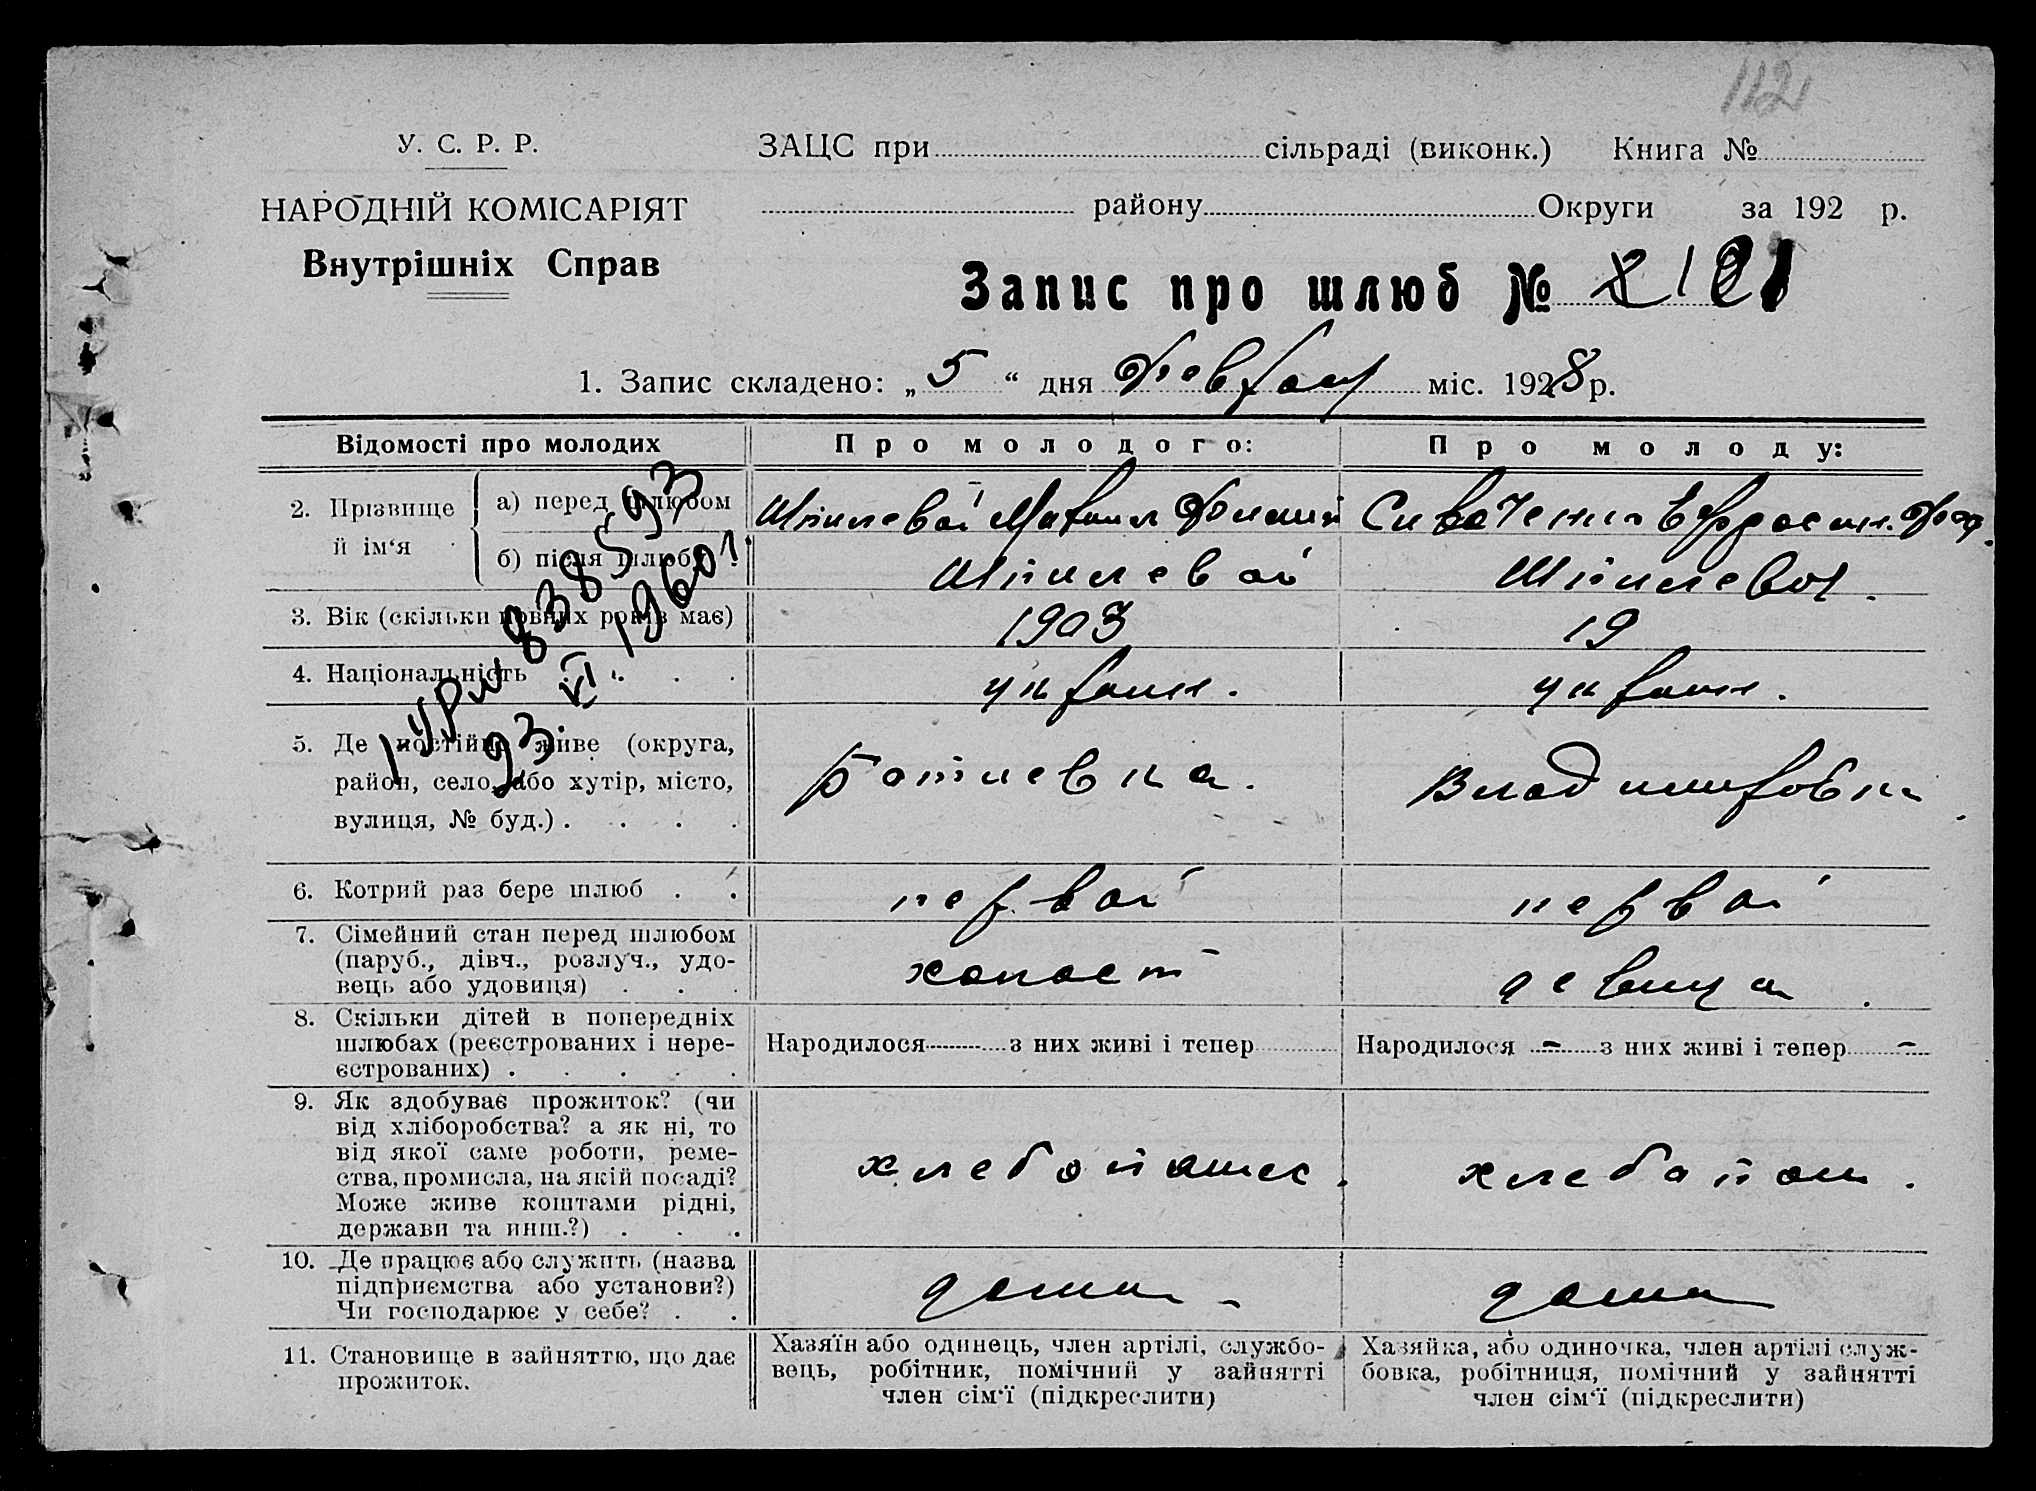 112
У. С. Р. Р.
НАРОДНІЙ КОМІСАРІЯТ
Внутрішніх Справ
ЗАЦС при сільраді (виконк.) Книга №
району Округи за 192 р.
Запис про шлюб №
1. Запис складено: „5“ дня Февраля міс. 1928 р.
Відомості про молодих
Про молодого:
Про молоду:
2. Прізвище й ім‘я
а) перед шлюбом
Шпилевой Михаил
Сиваченко Ефросин. Фед.
б) після шлюбу
Шпилевой
Шпилевая.
3. Вік (скільки повних років має)
1903
19
4. Національність
украин.
украин.
5. Де постійно живе (округа,
район, село, або хутір, місто,
вулиця, № буд.)
Ботиевка.
Владимировка
6. Котрий раз бере шлюб
первой
первой
7. Сімейний стан перед шлюбом
(паруб., дівч., розлуч., удо-
вець або удовиця)
холост
девица
8. Скільки дітей в попередніх
шлюбах (реєстрованих і нере-
єстрованих)
Народилося з них живі і тепер
Народилося - з них живі і тепер -
9. Як здобуває прожиток? (чи
від хліборобства? а як ні, то
від якої саме роботи, реме-
ства, промисла, на якій посаді?
Може живе коштами рідні,
держави та инш.?)
хлебопашес
хлебопаш.
10. Де працює або служить (назва
підприємства або установи?)
Чи господарює у себе?
дома
дома
11. Становище в зайняттю, що дає
прожиток.
Хазяїн або одинець, член артілі, службо-
вець, робітник, помічний у зайнятті
член сім‘ї (підкреслити)
Хазяйка, або одиночка, член артілі служ-
бовка, робітниця, помічний у зайнятті
член сім‘ї (підкреслити)
838593
23. VI 1960 г.